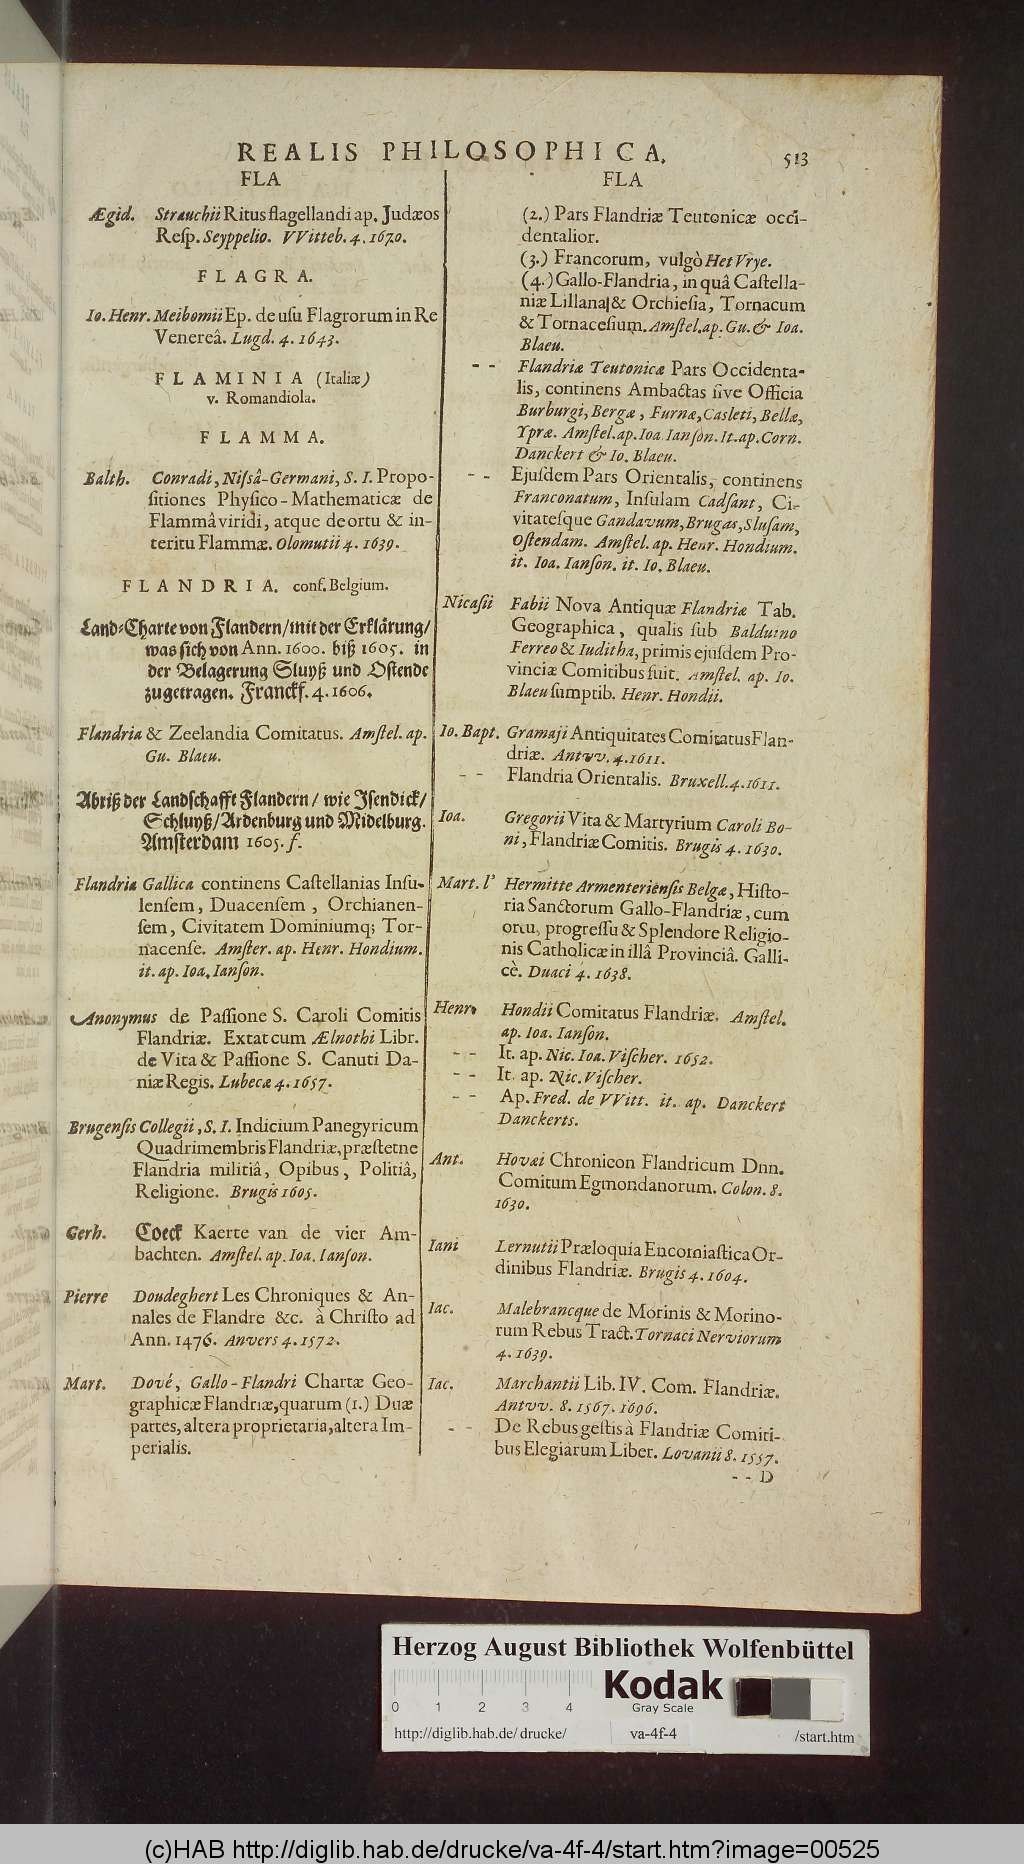 REALIS PHILOSOPHICA. 513
FLA
Ægid. Strauchii Ritus flagellandi ap. Judæos
Resp. Seyppelio. VVitteb. 4. 1670.
FLAGRA.
Io. Henr. Meibomii Ep. de usu Flagrorum in Re
Venereâ. Lugd. 4. 1643.
FLAMINIA (Italiæ)
v. Romandiola.
FLAMMA.
Balth. Conradi, Nisâ-Germani, S. I. Propo-
sitiones Physico-Mathematicæ de
Flammâ viridi, atque de ortu & in-
teritu Flammæ. Olomutii 4. 1639.
FLANDRIA. conf. Belgium.
Land-Charte von Flandern/mit der Erklärung/
was sich von Ann. 1600. biß 1605. in
der Belagerung Sluyß und Ostende
zugetragen. Franckf. 4. 1606.
Flandria & Zeelandia Comitatus. Amstel. ap.
Gu. Blaeu.
Abriß der Landschafft Flandern/ wie Isendick/
Schluyß/Ardenburg und Midelburg.
Amsterdam 1605. f.
Flandria Gallica continens Castellanias Insu-
lensem, Duacensem, Orchianen-
sem, Civitatem Dominiumq; Tor-
nacense. Amster. ap. Henr. Hondium.
it. ap. Ioa. Ianson.
Anonymus de Passione S. Caroli Comitis
Flandriæ. Extat cum Ælnothi Libr.
de Vita & Passione S. Canuti Da-
niæ Regis. Lubecæ 4. 1657.
Brugensis Collegii, S. I. Indicium Panegyricum
Quadrimembris Flandriæ, præstetne
Flandria militiâ, Opibus, Politiâ,
Religione. Brugis 1605.
Gerh. Coeck Kaerte van de vier Am-
bachten. Amstel. ap. Ioa. Ianson.
Pierre Doudeghert Les Chroniques & An-
nales de Flandre &c. â Christo ad
Ann. 1476. Anvers 4. 1572.
Mart. Dové, Gallo-Flandri Chartæ Geo-
graphicæ Flandriæ, quarum (1.) Duæ
partes, altera proprietaria, altera Im-
perialis.
FLA
(2.) Pars Flandriæ Teutonicæ occi-
dentalior.
(3.) Francorum, vulgò Het Vrye.
(4.) Gallo-Flandria, in quâ Castella-
niæ Lillana & Orchiesia, Tornacum
& Tornacesium. Amstel. ap. Gu. & Ioa.
Blaeu.
-- Flandriæ Teutonicæ Pars Occidenta-
lis, continens Ambactas sive Officia
Burburgi, Bergæ, Furnæ, Casleti, Bellæ,
Ypræ. Amstel. ap. Ioa Ianson. It. ap. Corn.
Danckert & Io. Blaeu.
-- Ejusdem Pars Orientalis, continens
Franconatum, Insulam Cadsant, Ci-
vitatesque Gandavum, Brugas, Slusam,
Ostendam. Amstel. ap. Henr. Hondium.
it. Ioa. Ianson. it. Io. Blaeu.
Nicasii Fabii Nova Antiquæ Flandriæ Tab.
Geographica, qualis sub Balduino
Ferreo & Iuditha, primis ejusdem Pro-
vinciæ Comitibus fuit. Amstel. ap. Io.
Blaeu sumptib. Henr. Hondii.
Io. Bapt. Gramaji Antiquitates Comitatus Flan-
driæ. Antvv. 4. 1611.
-- Flandria Orientalis. Bruxell. 4. 1611.
Ioa. Gregorii Vita & Martyrium Caroli Bo-
ni, Flandriæ Comitis. Brugis 4. 1630.
Mart. l' Hermitte Armenteriensis Belgæ, Histo-
ria Sanctorum Gallo-Flandriæ, cum
ortu, progressu & Splendore Religio-
nis Catholicæ in illâ Provinciâ. Galli-
cè. Duaci 4. 1638.
Henr. Hondii Comitatus Flandriæ. Amstel.
ap. Ioa. Ianson.
-- It. ap. Nic. Ioa. Vischer. 1652.
-- It. ap. Nic. Vischer.
-- Ap. Fred. de VVitt. it. ap. Danckert
Danckerts.
Ant. Hovæi Chronicon Flandricum Dnn.
Comitum Egmondanorum. Colon. 8.
1630.
Iani Lernutii Præloquia Encomiastica Or-
dinibus Flandriæ. Brugis 4. 1604.
Iac. Malebrancque de Morinis & Morino-
rum Rebus Tract. Tornaci Nerviorum
4. 1639.
Iac. Marchantii Lib. IV. Com. Flandriæ.
Antvv. 8. 1567. 1696.
-- De Rebus gestis à Flandriæ Comiti-
bus Elegiarum Liber. Lovanii 8. 1557.
-- D
Herzog August Bibliothek Wolfenbüttel
0 1 2 3 4
Kodak
Gray Scale
http://diglib.hab.de/drucke/ va-4f-4 /start.htm
(c)HAB http://diglib.hab.de/drucke/va-4f-4/start.htm?image=00525